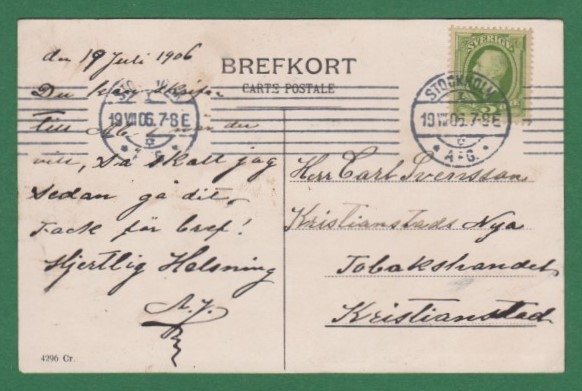 den 19 Juli 1906
BREFKORT
CARTE POSTALE
SVERIGE
STOCKHOLM
19 VII 06. 7-8 E
A+G.
19 VII 06. 7-8 E
Du
till du
vill, så skall jag
sedan gå dit.
Tack för bref!
Hjertlig Helsning
Herr Carl Svensson
Kristianstads Nya
Tobakshandel
Kristianstad
4296 Cr.